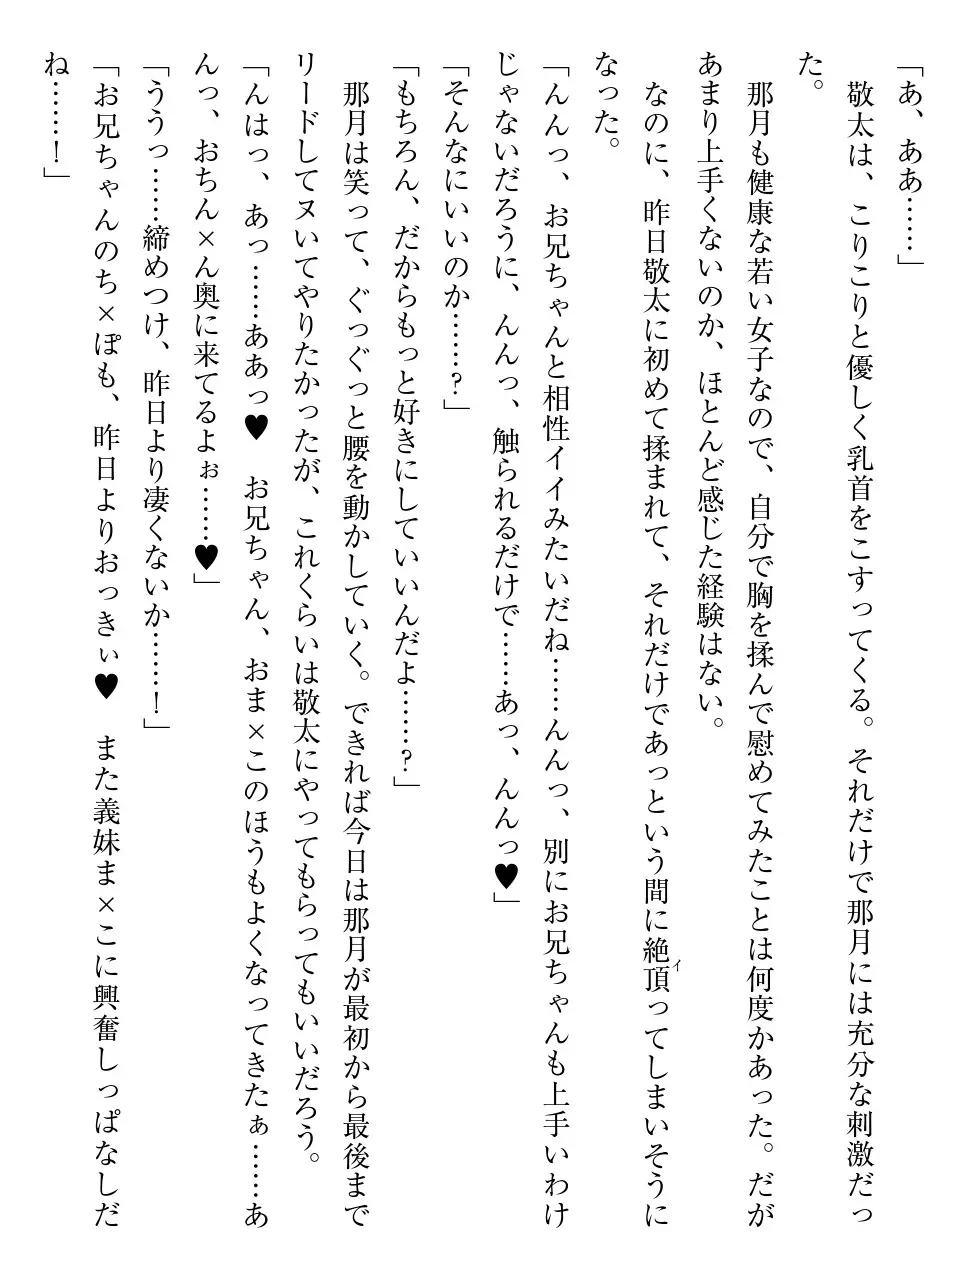 「あ、ああ……」
敬太は、こりこりと優しく乳首をこすってくる。それだけで那月には充分な刺激だっ
た。
那月も健康な若い女子なので、自分で胸を揉んで慰めてみたことは何度かあった。だが
あまり上手くないのか、ほとんど感じた経験はない。
なのに、昨日敬太に初めて揉まれて、それだけであっという間に絶頂イってしまいそうに
なった。
「んんっ、お兄ちゃんと相性イイみたいだね……んんっ、別にお兄ちゃんも上手いわけ
じゃないだろうに、んんっ、触られるだけで……あっ、んんっ♥」
「そんなにいいのか……？」
「もちろん、だからもっと好きにしていいんだよ……？」
那月は笑って、ぐっぐっと腰を動かしていく。できれば今日は那月が最初から最後まで
リードしてヌいてやりたかったが、これくらいは敬太にやってもらってもいいだろう。
「んはっ、あっ……ああっ♥　お兄ちゃん、おま×このほうもよくなってきたぁ……あ
んっ、おちん×ん奥に来てるよぉ……♥」
「ううっ……締めつけ、昨日より凄くないか……！」
「お兄ちゃんのち×ぽも、昨日よりおっきぃ♥　また義妹ま×こに興奮しっぱなしだ
ね……！」